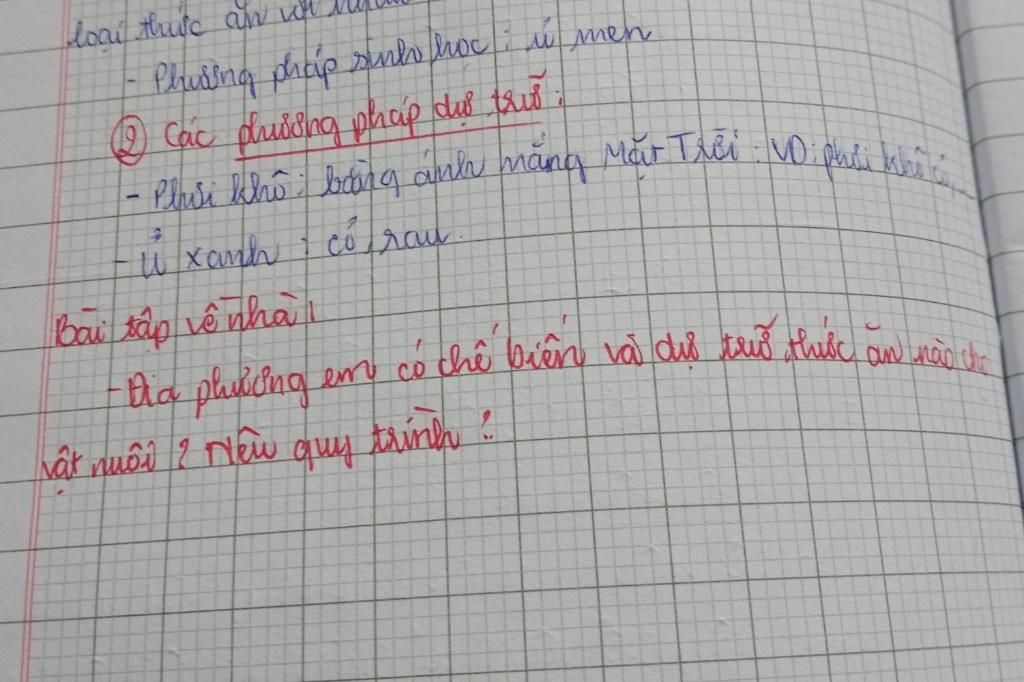 loại thức ăn với
- Phương pháp sinh học : ủ men
② Các phương pháp dự trữ :
- Phơi khô : bằng ánh nắng Mặt Trời : VD : phơi khô cỏ
- Ủ xanh : cỏ, rau.
Bài tập về nhà
- Địa phương em có chế biến và dự trữ thức ăn nào cho
vật nuôi ? Nêu quy trình ?